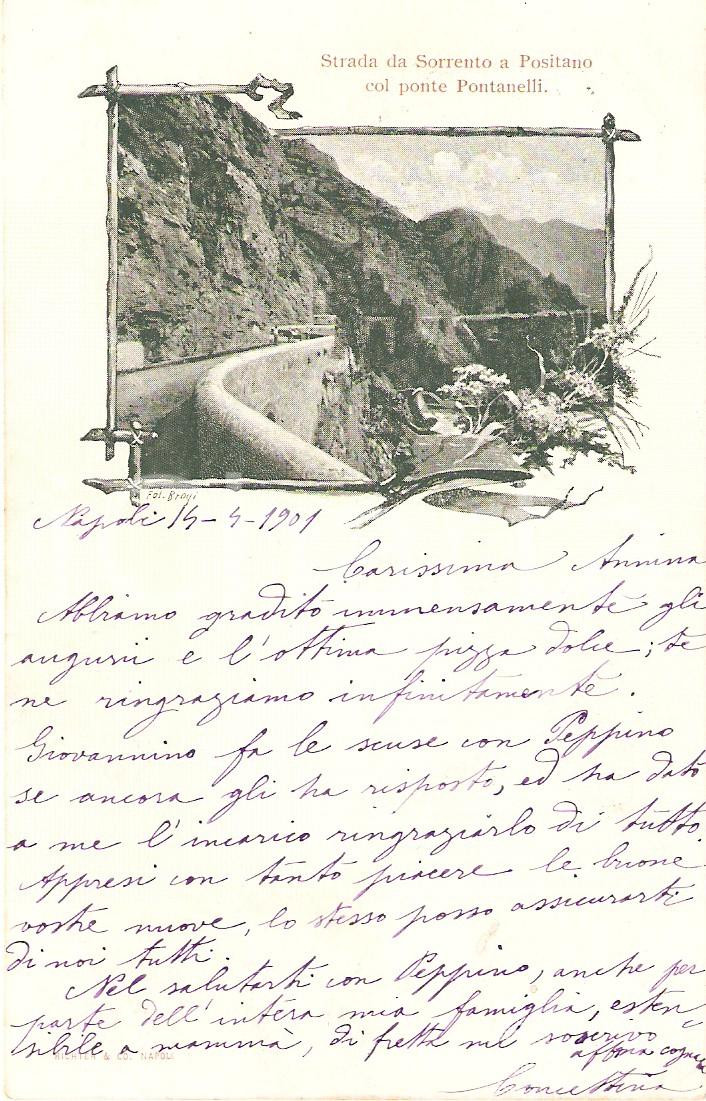 Strada da Sorrento a Positano
col ponte Pontanelli.
Fot. Brogi
Napoli 14-4-1901
Carissima Annina
Abbiamo gradito immensamente gli
auguri e l'ottima pizza dolce; te
ne ringraziamo infinitamente.
Giovannino fa le scuse con Peppino
se ancora gli ha risposto, ed ha dato
a me l'incarico ringraziarlo di tutto.
Appresi con tanto piacere le buone
vostre nuove, lo stesso posso assicurarti
di noi tutti.
Nel salutarti con Peppino, anche per
parte dell'intera mia famiglia, esten-
sibile a mammà, di fretta mi soscrivo
affma
RICHTER & CO. NAPOLI
Concettina